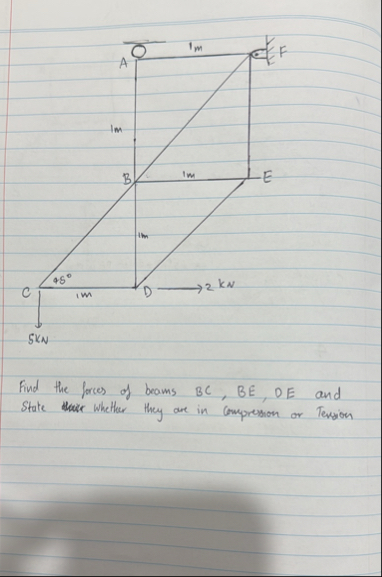 1m
F
A
1m
B
1m
E
1m
45°
C
1m
D
2 kN
5KN
Find the forces of beams BC, BE, DE and
State whether they are in Compression or Tension